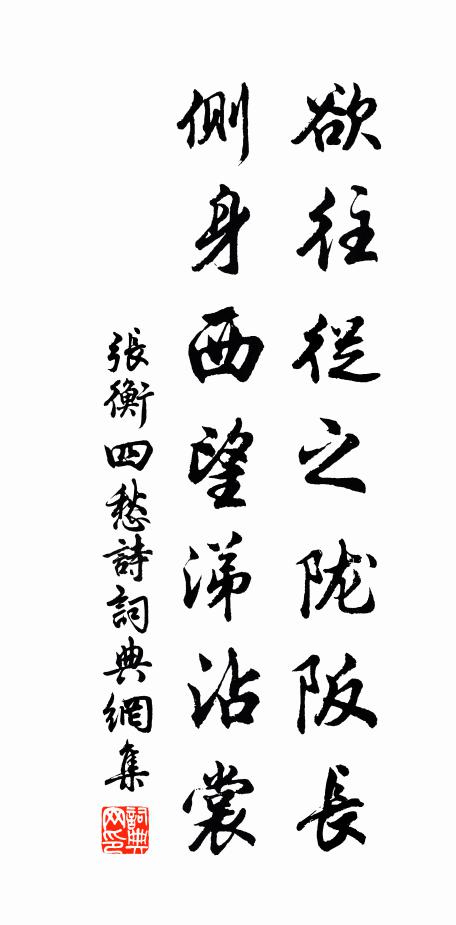 欲往從之陇阪長
側身西望涕沾裳
張衡四愁詩詞典網集
詞典网印